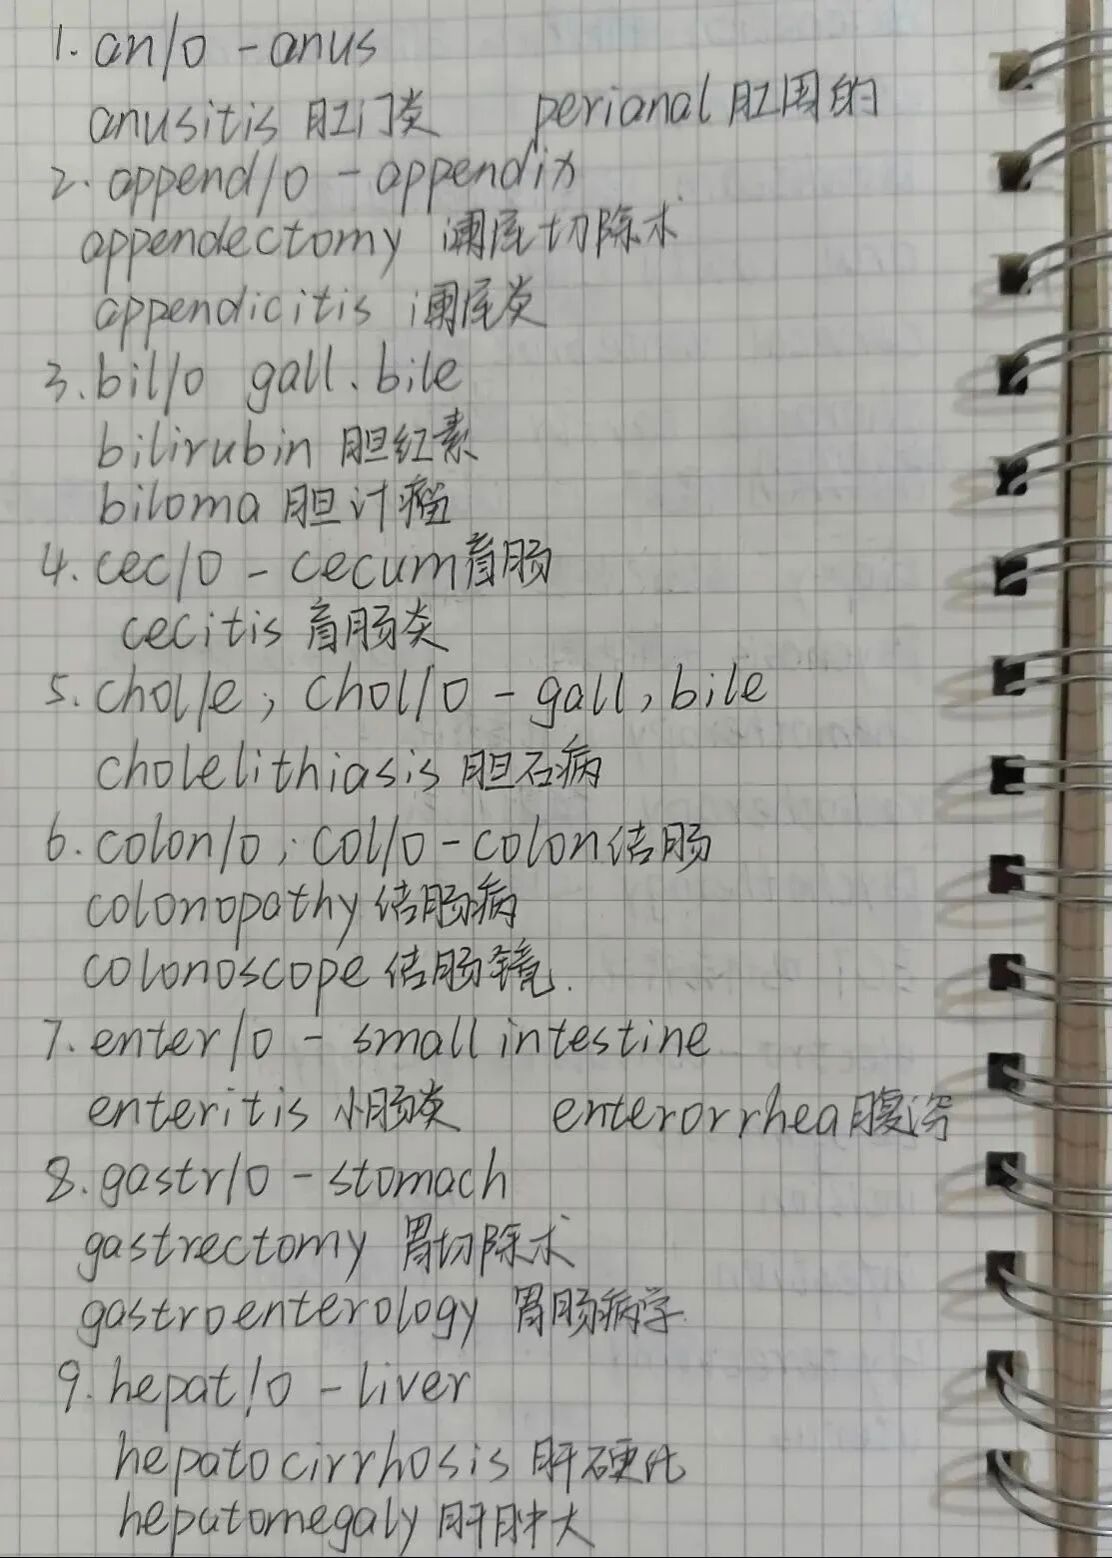 1. an/o - anus
anusitis 肛门炎 perianal 肛周的
2. append/o - appendix
appendectomy 阑尾切除术
appendicitis 阑尾炎
3. bil/o gall. bile
bilirubin 胆红素
biloma 胆汁瘤
4. cec/o - cecum 盲肠
cecitis 盲肠炎
5. chol/e ; chol/o - gall, bile
cholelithiasis 胆石病
6. colon/o ; col/o - colon 结肠
colonopathy 结肠病
colonoscope 结肠镜.
7. enter/o - small intestine
enteritis 小肠炎 enterorrhea 腹泻
8. gastr/o - stomach
gastrectomy 胃切除术
gastroenterology 胃肠病学
9. hepat/o - liver
hepatocirrhosis 肝硬化
hepatomegaly 肝肿大